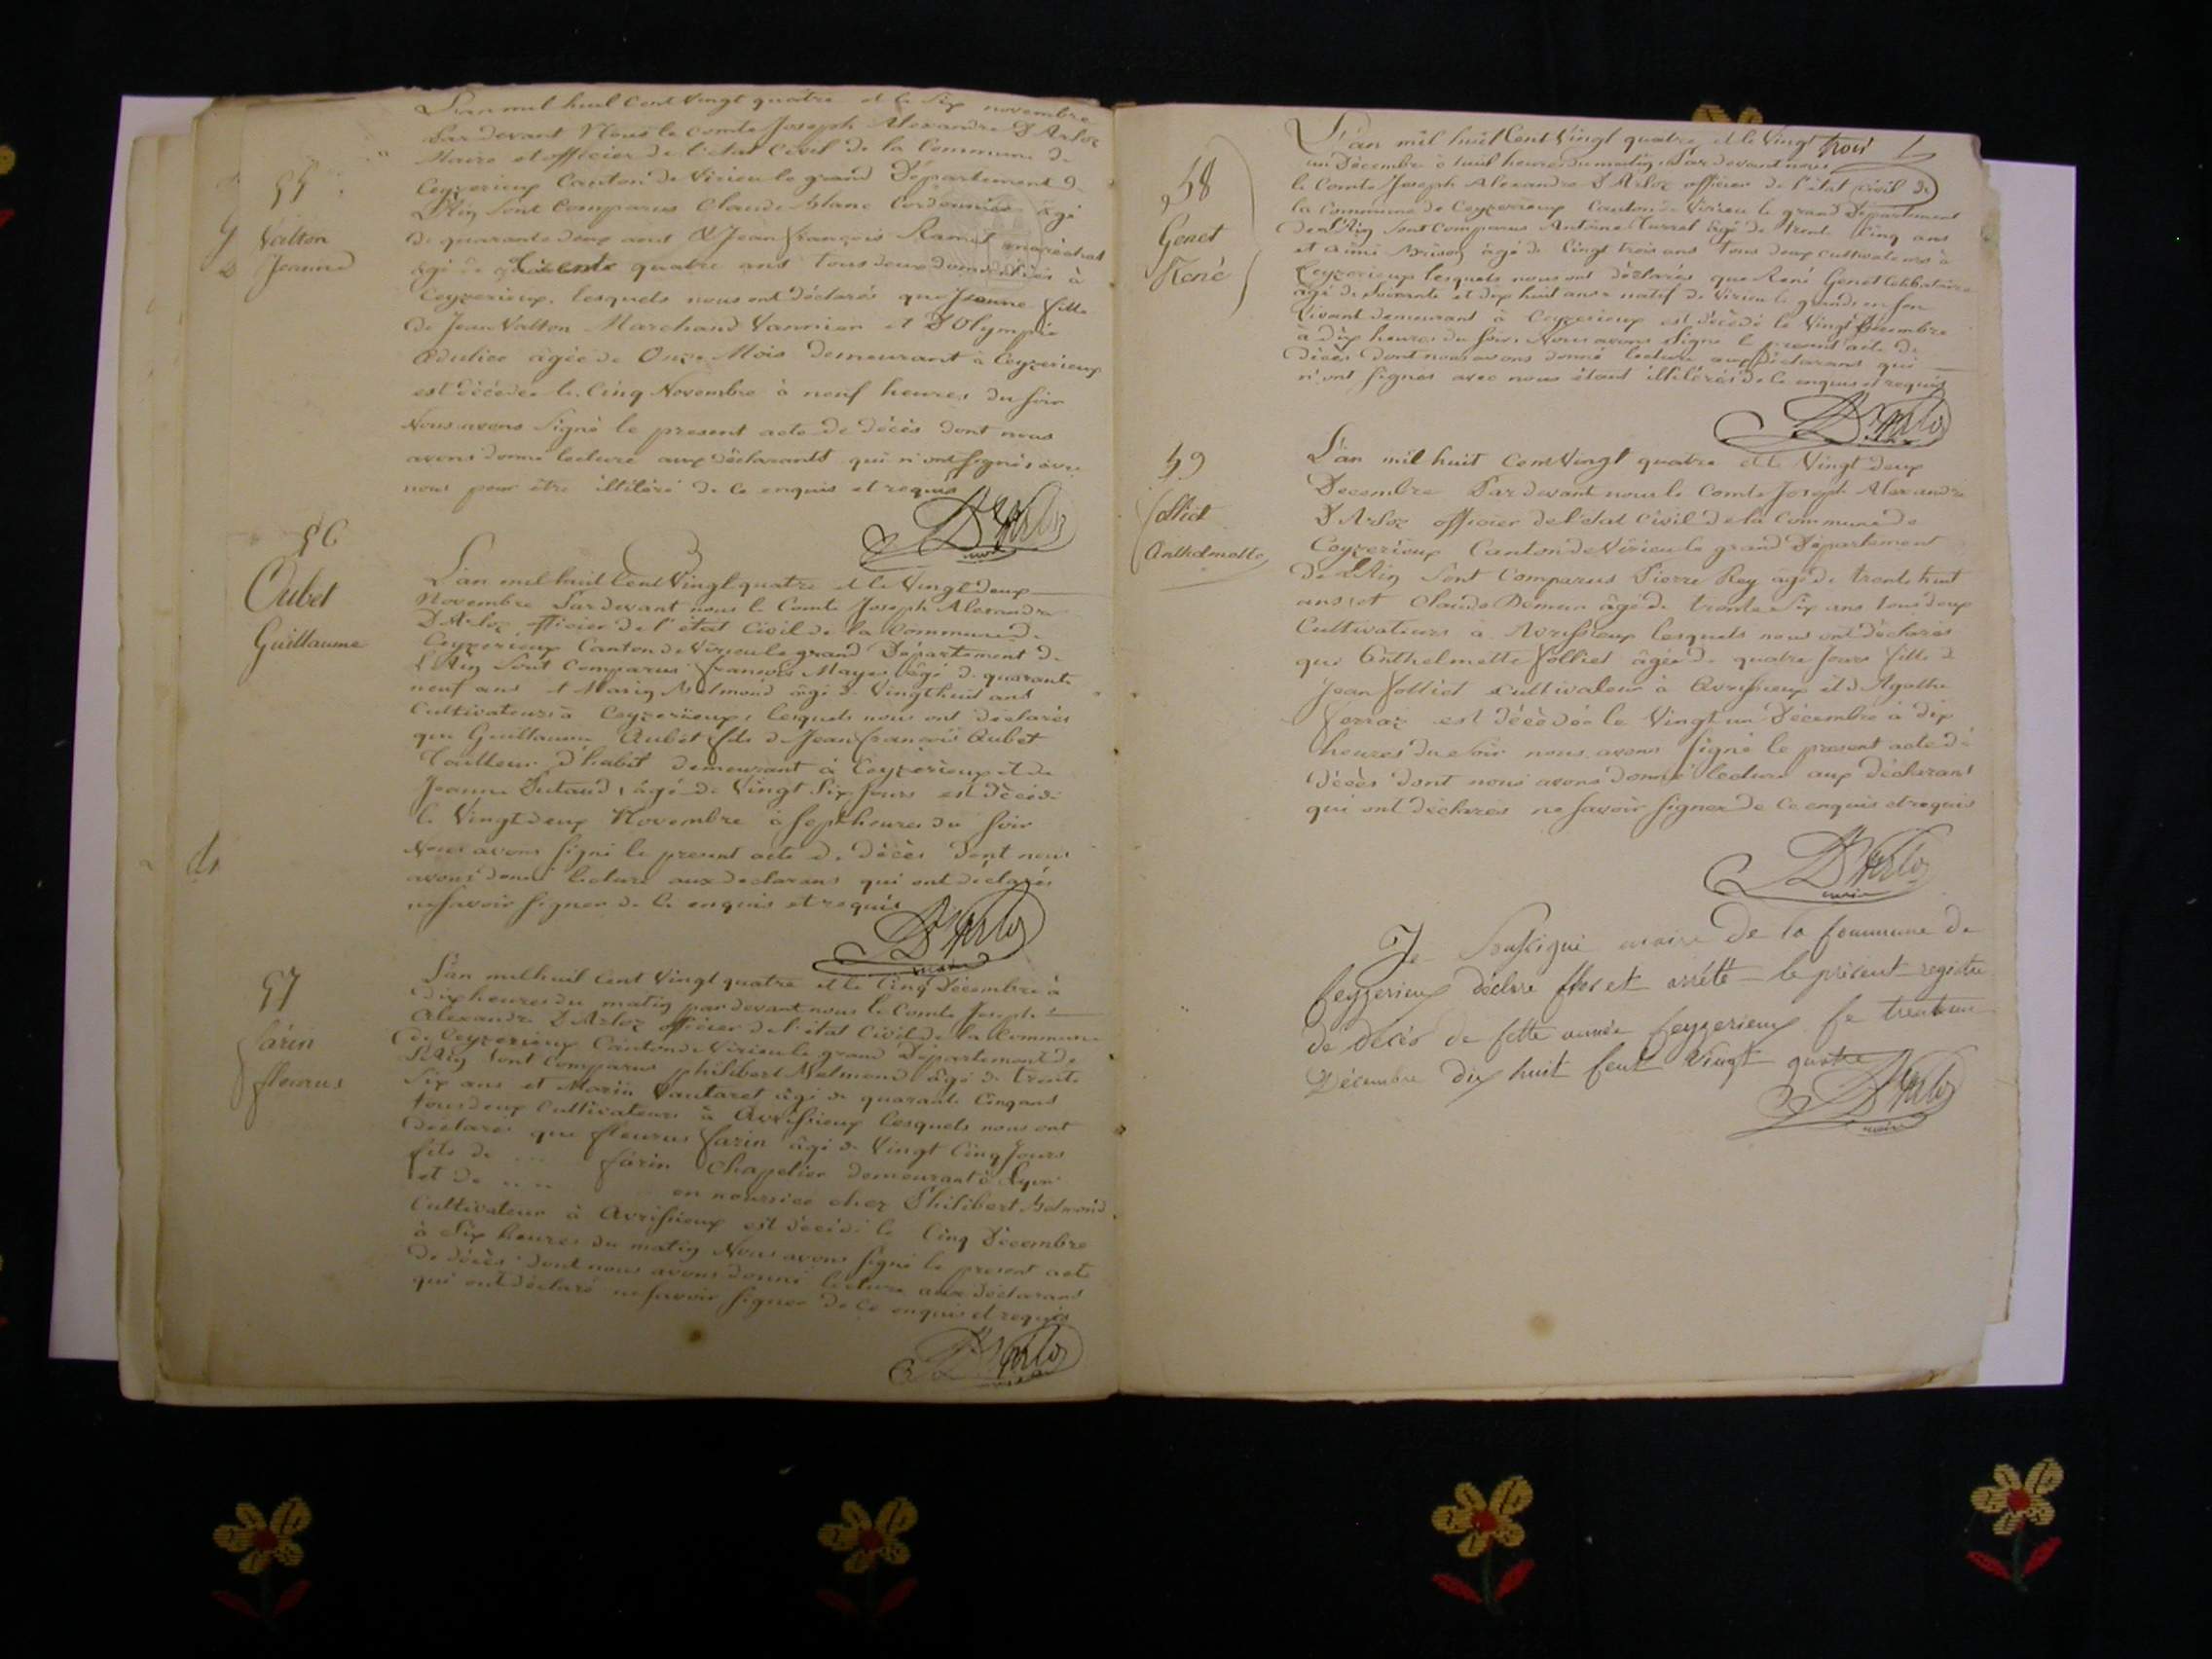 55
Valton
Jeanne
L'an mil huit Cent Vingt quatre et le Six novembre
Par devant Nous le Comte Joseph Alexandre D'Arloz
Maire et officier de l'état Civil de la Commune de
Ceyzerieux Canton de Virieu le grand Département de
L'Ain Sont Comparus Claude Blanc Cordonnier âgé
de quarante deux ans & Jean françois Ramel maréchal
âgé de trente quatre ans tous deux domiciliés à
Ceyzerieux, lesquels nous ont déclarés que Jeanne fille
de Jean Valton Marchand Vannier et D'Olympie
âgée de Onze Mois demeurant à Ceyzerieux
est décédée le Cinq Novembre à neuf heures du soir
Nous avons Signé le present acte de décès dont nous
avons donné lecture aux déclarants qui n'ont signés avec
nous pour être illitéré de ce enquis et requis
D'Arloz
maire
56
Aubet
Guillaume
L'an mil huit Cent Vingt quatre et le Vingt deux
Novembre Par devant nous le Comte Joseph Alexandre
D'Arloz officier de l'état Civil de la Commune de
Ceyzerieux Canton de Virieu le grand Département de
L'Ain Sont Comparus françois Mayer âgé de quarante
neuf ans et Marin âgé de Vingt huit ans
Cultivateurs à Ceyzerieux, lesquels nous ont déclarés
que Guillaume Aubet fils de Jean françois Aubet
Tailleur d'habit demeurant à Ceyzerieux et de
Jeanne Dutaud, âgé de Vingt Six Jours est décédé
le Vingt deux Novembre à Sept heures du soir
Nous avons signé le present acte de décès dont nous
avons donné lecture aux declarans qui ont déclarés
ne savoir signer de ce enquis et requis
D'Arloz
maire
57
farin
fleurus
L'an mil huit Cent Vingt quatre et le Cinq Décembre à
dix heures du matin par devant nous le Comte Joseph
Alexandre D'Arloz officier de l'état Civil de la Commune
de Ceyzerieux Canton de Virieu le grand Département de
L'Ain Sont Comparus philibert âgé de trente
Six ans et Marin Vautaret âgé de quarante Cinq ans
tous deux Cultivateurs à Avrissieux lesquels nous ont
déclaré que fleurus farin âgé de Vingt Cinq Jours
fils de ... farin Chapelier demeurant à Lyon
et de .. .. en nourrice chez Philibert
Cultivateur à Avrissieux est décédé le Cinq Décembre
à Six heures du matin Nous avons signé le present acte
de décès dont nous avons donné lecture aux déclarans
qui ont déclaré ne savoir signer de ce enquis et requis
D'Arloz
maire
58
Genet
René
L'an mil huit Cent Vingt quatre et le Vingt trois
un Décembre à huit heures du matin Par devant nous
le Comte Joseph Alexandre D'Arloz officier de l'état civil de
la Commune de Ceyzerieux Canton de Virieu le grand Département
de L'Ain Sont Comparus Antoine âgé de trente Cinq ans
et aimé âgé de Vingt trois ans tous deux cultivateurs à
Ceyzerieux lesquels nous ont déclarés que René Genet Célibataire
âgé de Soixante et dix huit ans natif de Virieu le grand en son
Vivant demeurant à Ceyzerieux est décédé le Vingt Décembre
à dix heures du soir. Nous avons signé le present acte de
décès dont nous avons donné lecture aux déclarans qui
n'ont signés avec nous étant illitérés de ce enquis et requis
D'Arloz
59
folliet
Anthelmette
L'an mil huit Cent Vingt quatre et le Vingt deux
Decembre Par devant nous le Comte Joseph Alexandre
D'Arloz officier de l'état Civil de la Commune de
Ceyzerieux Canton de Virieu le grand Département
de L'Ain Sont Comparus Pierre Rey âgé de trente huit
ans et Claude âgé de trente Six ans tous deux
Cultivateurs à Avrissieux lesquels nous ont déclarés
que Anthelmette folliet âgée de quatre Jours fille de
Jean folliet cultivateur à Avrissieux et de Agathe
est décèdée le Vingt un Décembre à dix
heures du soir nous avons signé le present acte de
décès dont nous avons donné lecture aux déclarans
qui ont déclarés ne savoir signer de ce enquis et requis
D'Arloz
maire
Je Soussigné maire de la Commune de
Ceyzerieux déclare Clos et arrêté le présent registre
de décès de Cette année Ceyzerieux Ce trente un
Décembre dix huit Cent Vingt quatre
D'Arloz
maire